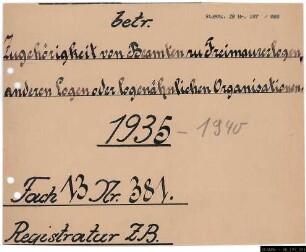 betr.
Zugehörigkeit von Beamten zu Freimaurerlogen,
anderen Logen oder logenähnlichen Organisationen.
1935 - 1940
Fach 13 Nr. 381.
Registratur Z.B.